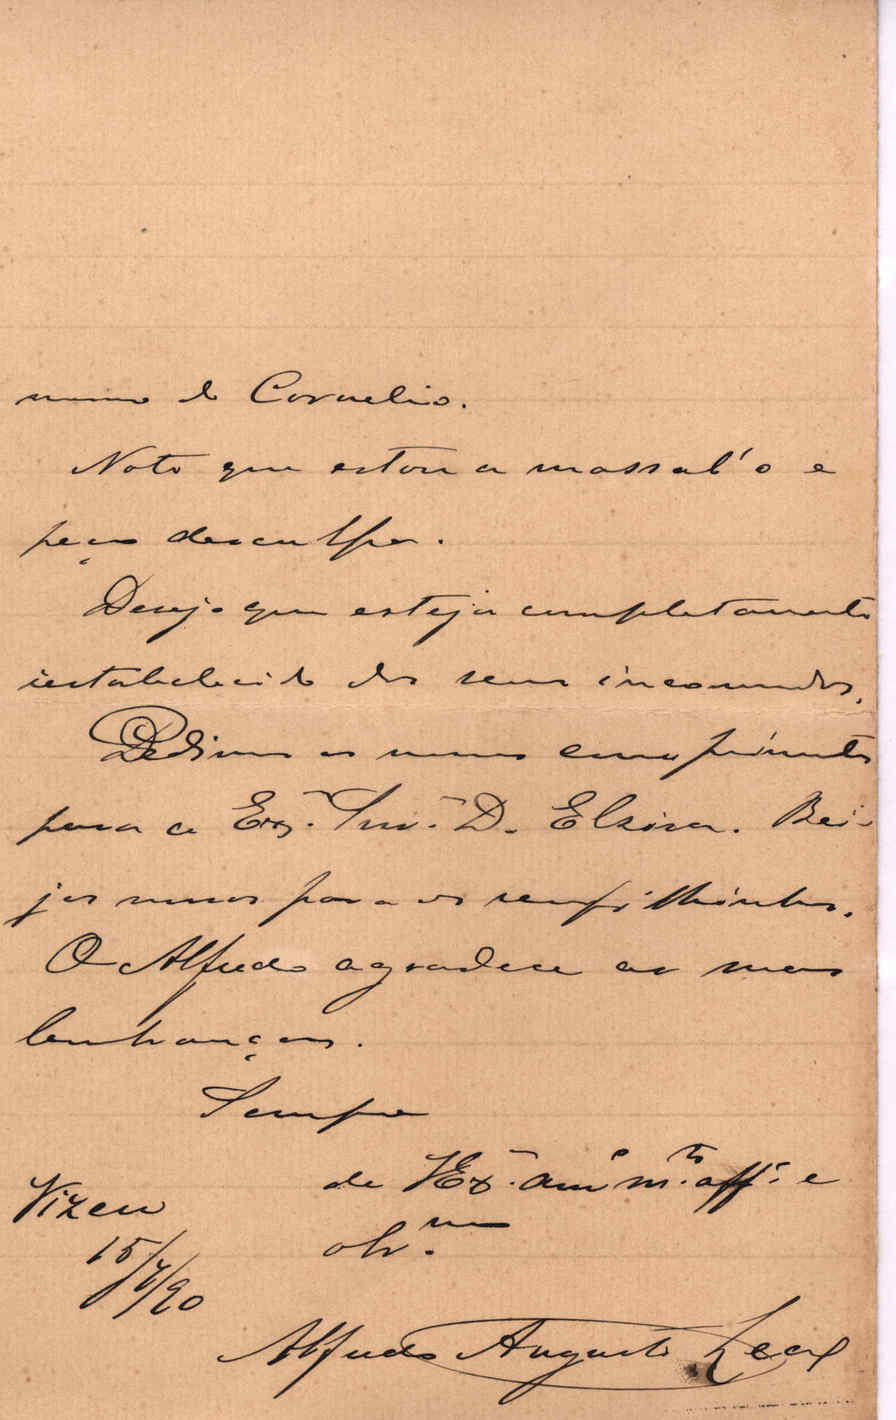 do Cornelio.
Noto que estou a massal'o e
peço desculpa.
Desejo que esteja completamente
restabelecido dos seus incommodos.
Pedimos os nossos cumprimentos
para a Ex.ma Snr.a D. Elzira. Bei-
jos nossos para os seus filhinhos.
O Alfredo agradece as suas
lembranças.
Sempre
de V Ex.a am.o m.to aff.o e
obr.mo
Vizeu
15/7/90
Alfredo Augusto Leal